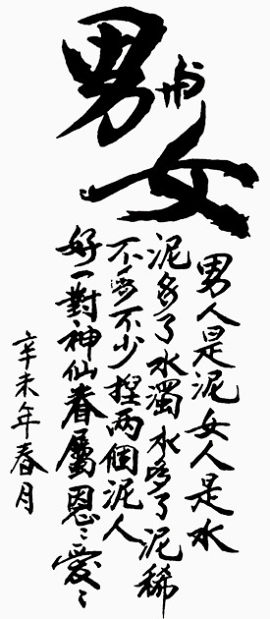 男與女
男人是泥女人是水
泥多了水濁水多了泥稀
不多不少捏两個泥人
好一對神仙眷屬恩〻愛〻
辛未年春月